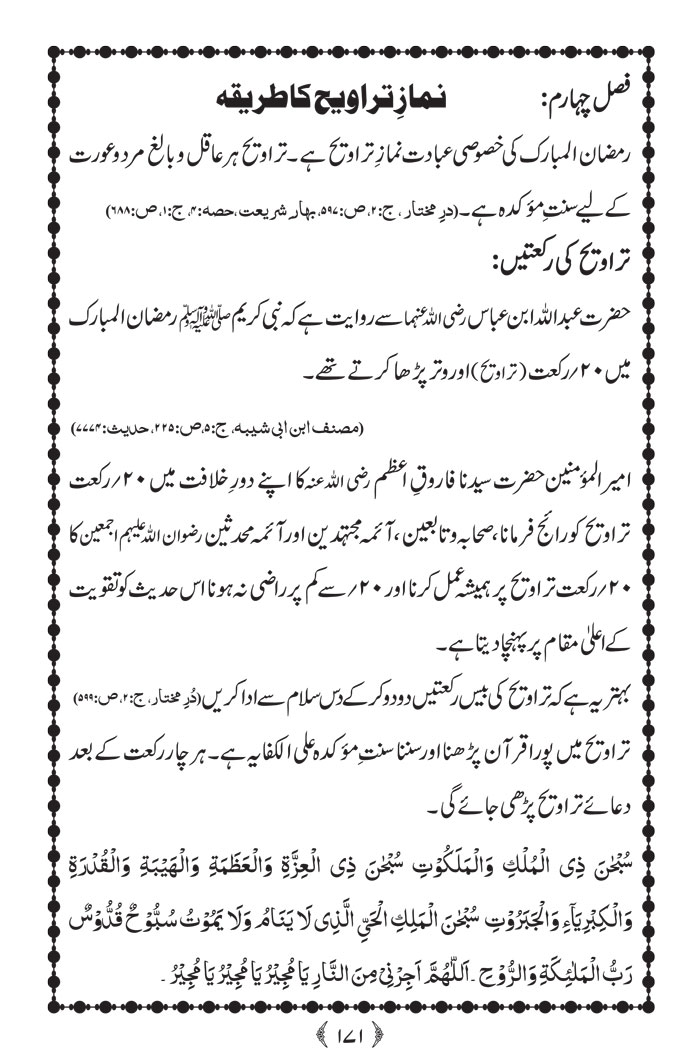 فصل چہارم: نمازِ تراویح کا طریقہ
رمضان المبارک کی خصوصی عبادت نمازِ تراویح ہے۔ تراویح ہر عاقل و بالغ مرد و عورت
کے لیے سنتِ مؤکدہ ہے۔ (درِ مختار، ج:۲، ص:۵۹۷، بہارِ شریعت، حصہ:۴، ج:۱، ص:۶۸۸)
تراویح کی رکعتیں:
حضرت عبداللہ ابن عباس رضی اللہ عنہما سے روایت ہے کہ نبی کریم ﷺ رمضان المبارک
میں ۲۰؍ رکعت (تراویح) اور وتر پڑھا کرتے تھے۔
(مصنف ابن ابی شیبہ، ج:۵، ص:۲۲۵، حدیث:۷۷۷۴)
امیر المؤمنین حضرت سیدنا فاروقِ اعظم رضی اللہ عنہ کا اپنے دورِ خلافت میں ۲۰؍ رکعت
تراویح کو رائج فرمانا، صحابہ و تابعین، آئمہ مجتہدین اور آئمہ محدثین رضوان اللہ علیہم اجمعین کا
۲۰؍ رکعت تراویح پر ہمیشہ عمل کرنا اور ۲۰؍ سے کم پر راضی نہ ہونا اس حدیث کو تقویت
کے اعلیٰ مقام پر پہنچا دیتا ہے۔
بہتر یہ ہے کہ تراویح کی بیس رکعتیں دو دو کر کے دس سلام سے ادا کریں (دُرِ مختار، ج:۲، ص:۵۹۹)
تراویح میں پورا قرآن پڑھنا اور سننا سنتِ مؤکدہ علی الکفایہ ہے۔ ہر چار رکعت کے بعد
دعائے تراویح پڑھی جائے گی۔
سُبْحٰنَ ذِی الْمُلْكِ وَالْمَلَكُوْتِ سُبْحٰنَ ذِی الْعِزَّةِ وَالْعَظَمَةِ وَالْهَیْبَةِ وَالْقُدْرَةِ
وَالْكِبْرِیَآءِ وَالْجَبَرُوْتِ سُبْحٰنَ الْمَلِكِ الْحَیِّ الَّذِی لَا یَنَامُ وَلَا یَمُوْتُ سُبُّوْحٌ قُدُّوْسٌ
رَبُّ الْمَلٰئِكَةِ وَالرُّوْحِ۔ اَللّٰهُمَّ اَجِرْنِیْ مِنَ النَّارِ یَا مُجِیْرُ یَا مُجِیْرُ یَا مُجِیْرُ۔
﴿۱۷۱﴾